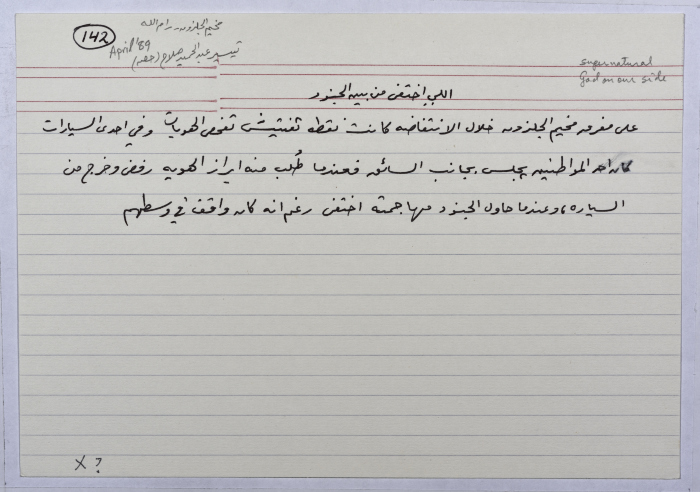 142
مخيم الجلزون - رام الله
April '89
تيسير عبد الحميد صلاح (حمص)
supernatural
God on our side
اللي اختفى من بين الجنود
على مفرق مخيم الجلزون خلال الانتفاضه كانت نقطه تفتيش تفحص الهويات وفي احدى السيارات
كان احد المواطنين يجلس بجانب السائق فعندما طُلب منه ابراز الهويه رفض وخرج من
السياره، وعندما حاول الجنود مهاجمته اختفى رغم انه كان واقف في وسطهم
X ?